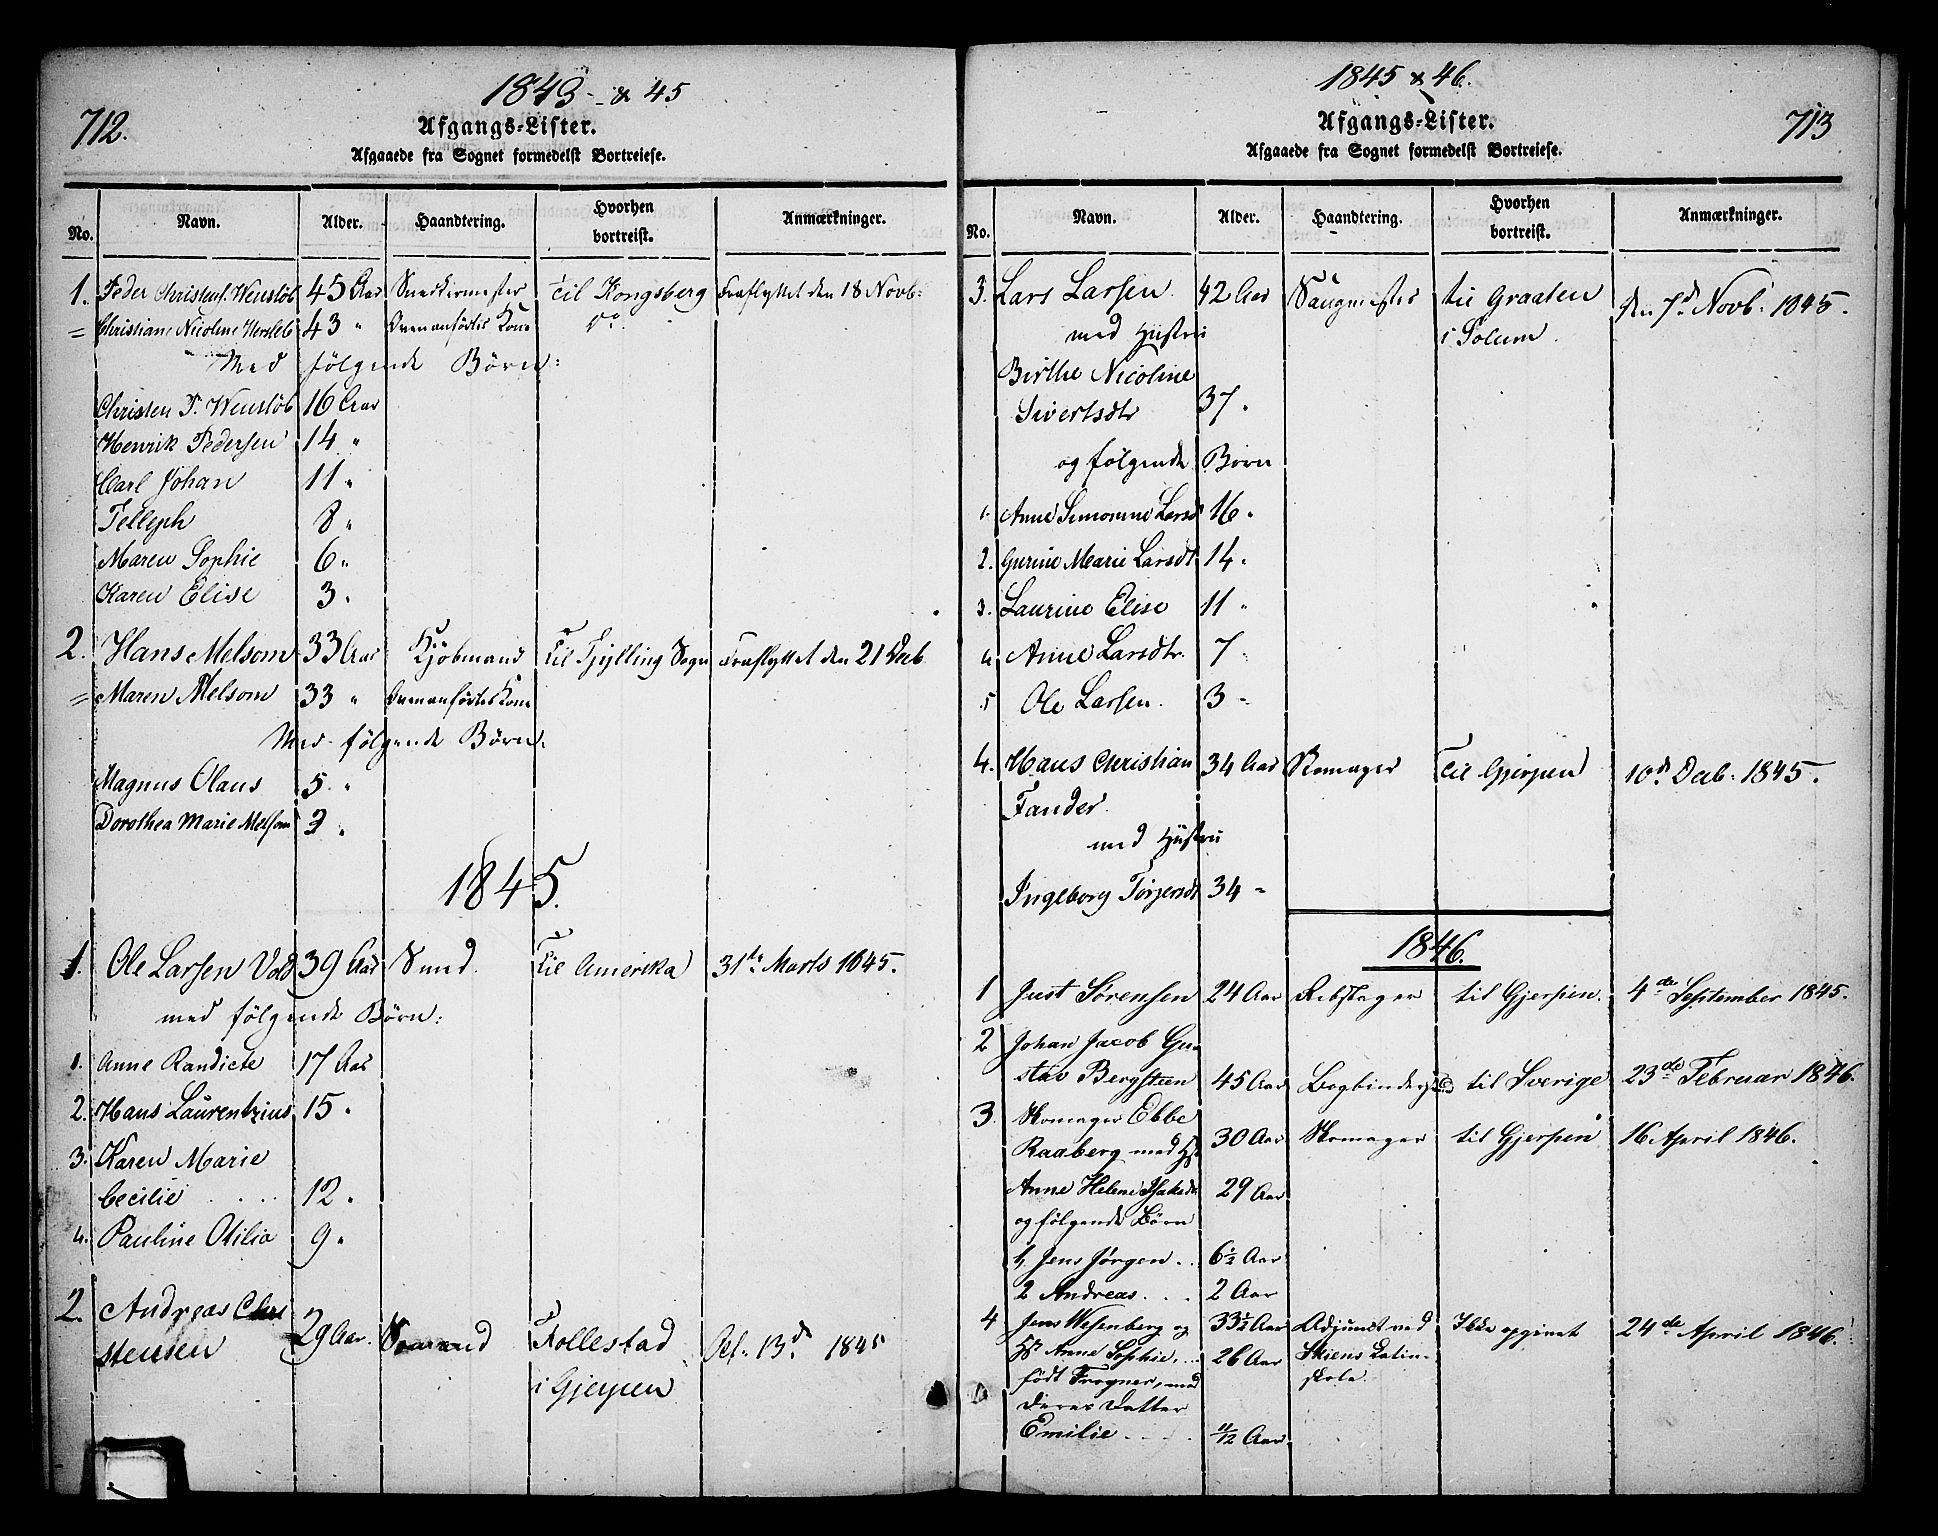 1843 & 45
712.
Afgangs-Lister.
Afgaaede fra Sognet formedelst Bortreiese.
No. Navn. Alder. Haandtering. Hvorhen bortreist. Anmærkninger.
1. Peder Christens. Wenslöb 45 Aar Snedkermester Til Kongsberg Fraflyttet den 18 Novb:
= Christiane Nicoline Hersleb 43 " Ovenanførtes Kone Do
Med følgende Börn:
Christen P. Wenslöb 16 Aar
Henrik Pedersen 14 "
Carl Johan 11 "
Telleph 8 "
Maren Sophie 6 "
Karen Elise 3 "
2. Hans Melsom 33 Aar Kjöbmand Til Tjylling Sogn Fraflyttet den 21 Decb
= Maren Melsom 33 " Ovenanførtes Kone
Med følgende Börn:
Magnus Olaus 5 "
Dorothea Marie Melsom 3 "
1845.
1. Ole Larsen Vold 39 Aar Smed. Til Amerika 31te Marts 1845.
med følgende Börn:
1. Anne Randicte 17 Aar
2. Hans Laurentzius 15 "
3. Karen Marie
Cecilie 12 "
4. Pauline Otilia 9 "
2. Andreas Chri
stensen 29 Aar. Føllestad 13de 1845
i Gjerpen
1845 & 46.
713
Afgangs-Lister.
Afgaaede fra Sognet formedelst Bortreiese.
No. Navn. Alder. Haandtering. Hvorhen bortreist. Anmærkninger.
3. Lars Larsen 42 Aar Saugmester til Graaten den 7de Novb: 1845.
med Hustru i Solum.
Birthe Nicoline
Sivertsdtr 37 "
og følgende Börn
1. Anne Simonine Larsd 16 "
2. Gurine Marie Larsdt 14 "
3. Laurine Elise 11 "
4 Anne Larsdtr. 7 "
5 Ole Larsen. 3 "
4. Hans Christian 34 Aar Skomager Til Gjerpen 10de Decb. 1845.
Fander.
med Hustru
Ingeborg Torjersdt 34 "
1846.
1 Just Sørensen 24 Aar Rebslager til Gjerpen. 4de September 1845.
2 Johan Jacob Gu-
stav Bergsteen 45 Aar til Sverige 23de Februar 1846.
3. Skomager Ebbe
Raaberg med H 30 Aar Skomager til Gjerpen 16 April 1846.
Anne Helene Isaksdt 29 Aar
og følgende Börn
1, Jens Jørgen 6½ Aar
2 Andreas 2 Aar
4 Jens Wesenberg og 33½ Aar Adjunct ved Ikke opgivet 24de April 1846.
H Anne Sophie, 26 Aar Skiens Latin-
født Frogner, med skole
deres Datter
Emilie 11/12 Aar